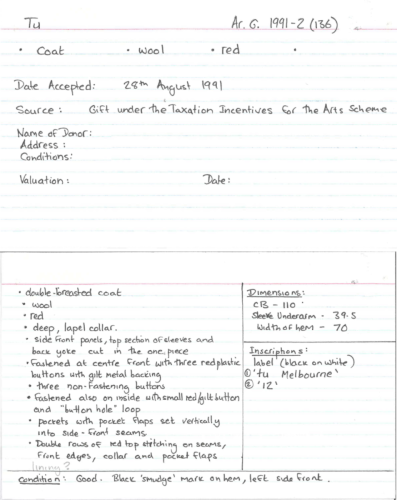 Tu Ar. G. 1991-2 (136)
• Coat • wool • red •
Date Accepted: 28th August 1991
Source: Gift under the Taxation Incentives for the Arts Scheme
Name of Donor:
Address:
Conditions:
Valuation: Date:
• double-breasted coat
• wool
• red
• deep, lapel collar.
• side front panels, top section of sleeves and
back yoke cut in the one piece
• Fastened at centre front with three red plastic
buttons with gilt metal backing
• three non-fastening buttons
• Fastened also on inside with small red/gilt button
and "button hole" loop
• pockets with pocket flaps set vertically
into side-front seams
• Double rows of red top stitching on seams,
front edges, collar and pocket flaps
lining?
Dimensions:
CB - 110
Sleeve Underarm - 39.5
Width of hem - 70
Inscriptions:
label (black on white)
① 'tu Melbourne'
② '12'
Condition: Good. Black 'smudge' mark on hem, left side front.